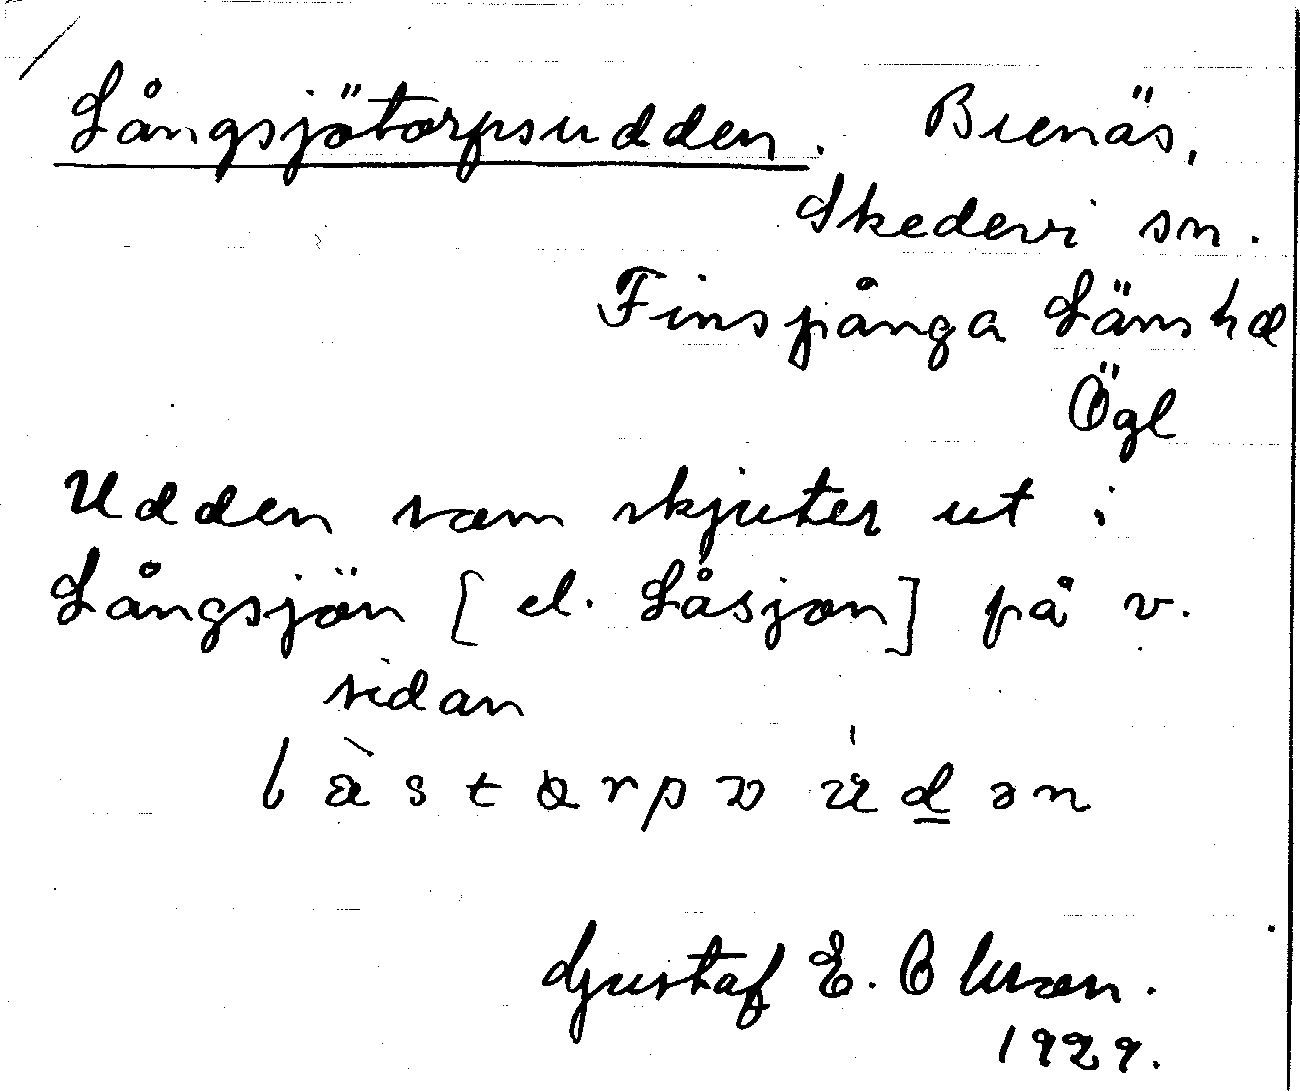 Långsjötorpsudden. Bienäs,
Skedevi sn.
Finspånga Länshd
Ögl
Udden som skjuter ut i
Långsjön [el. Låsjon] på v.
sidan
Gustaf E. Olsson.
1929.